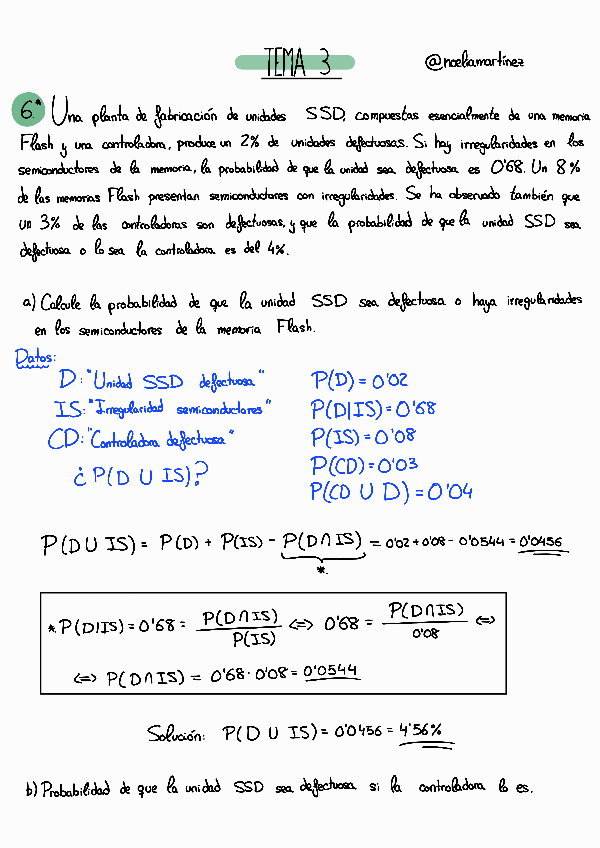 TEMA 3
@noeliamartinez
6.ª Una planta de fabricación de unidades SSD, compuestas esencialmente de una memoria
Flash y una controladora, produce un 2% de unidades defectuosas. Si hay irregularidades en los
semiconductores de la memoria, la probabilidad de que la unidad sea defectuosa es 0'68. Un 8%
de las memorias Flash presentan semiconductores con irregularidades. Se ha observado también que
un 3% de las controladoras son defectuosas, y que la probabilidad de que la unidad SSD sea
defectuosa o lo sea la controladora es del 4%.
a) Calcule la probabilidad de que la unidad SSD sea defectuosa o haya irregularidades
en los semiconductores de la memoria Flash.
Datos:
D: "Unidad SSD defectuosa" P(D) = 0'02
IS: "Irregularidad semiconductores" P(D|IS) = 0'68
CD: "Controladora defectuosa" P(IS) = 0'08
¿P(D U IS)? P(CD) = 0'03
P(CD U D) = 0'04
P(D U IS) = P(D) + P(IS) - P(D ∩ IS) = 0'02 + 0'08 - 0'0544 = 0'0456
*.
* P(D|IS) = 0'68 = P(D∩IS) / P(IS) <=> 0'68 = P(D∩IS) / 0'08 <=>
<=> P(D∩IS) = 0'68 · 0'08 = 0'0544
Solución: P(D U IS) = 0'0456 = 4'56%
b) Probabilidad de que la unidad SSD sea defectuosa si la controladora lo es.